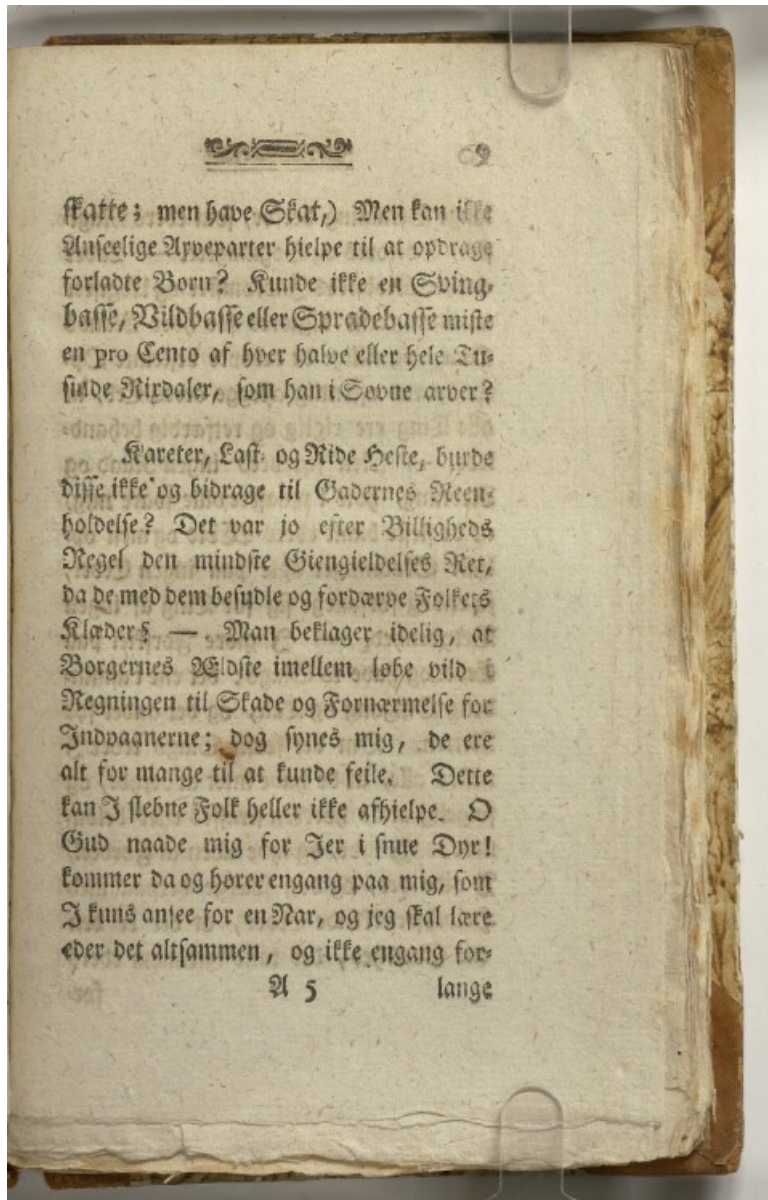 9
skatte; men have Skat,) Men kan ikke
Anseelige Arveparter hielpe til at opdrage
forladte Børn? Kunde ikke en Sving-
basse, Vildbasse eller Spradebasse miste
en pro Cento af hver halve eller hele Tu-
sinde Rixdaler, som han i Søvne arver?
Kareter, Last- og Ride Heste, burde
disse ikke og bidrage til Gadernes Reen-
holdelse? Det var jo efter Billigheds
Regel den mindste Giengieldelses Ret,
da de med dem besudle og fordærve Folkets
Klæder? —. Man beklager idelig, at
Borgernes Ældste imellem løbe vild i
Regningen til Skade og Fornærmelse for
Indvaanerne; dog synes mig, de ere
alt for mange til at kunde feile. Dette
kan I slebne Folk heller ikke afhielpe. O
Gud naade mig for Jer i snue Dyr!
kommer da og hører engang paa mig, som
I kuns ansee for en Nar, og jeg skal lære
eder det altsammen, og ikke engang for-
A 5 lange